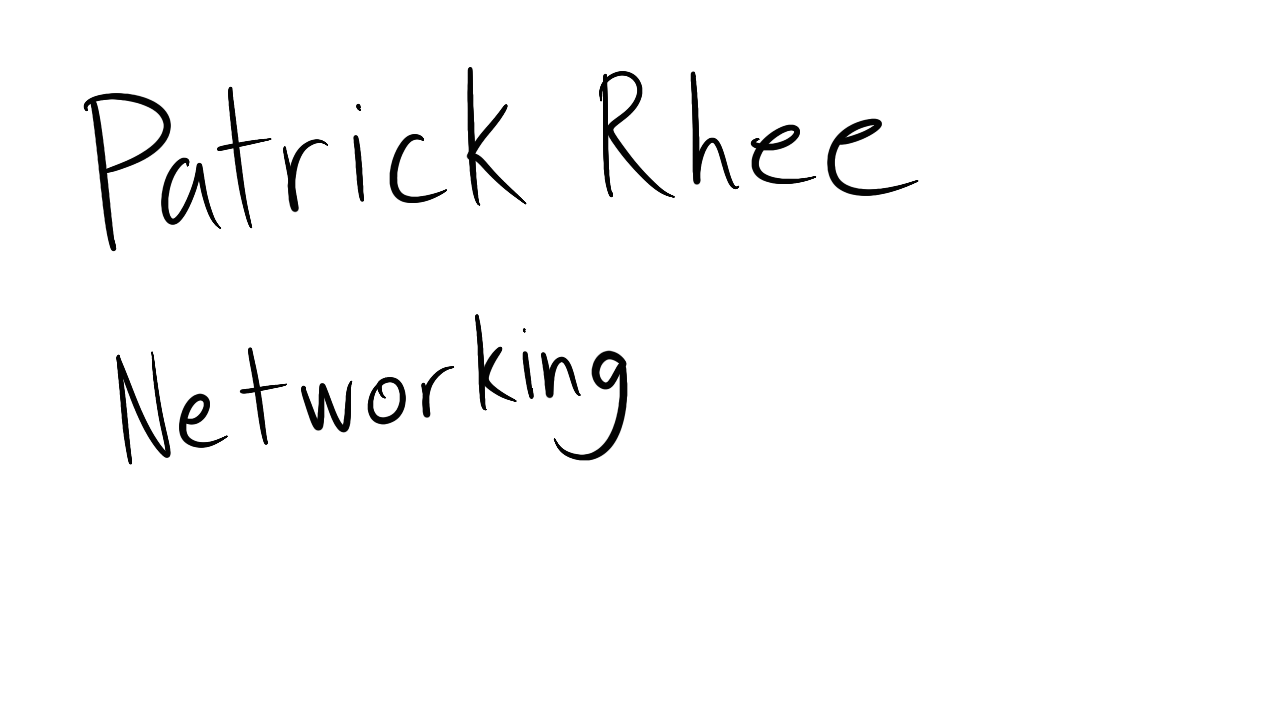 Patrick Rhee
Networking